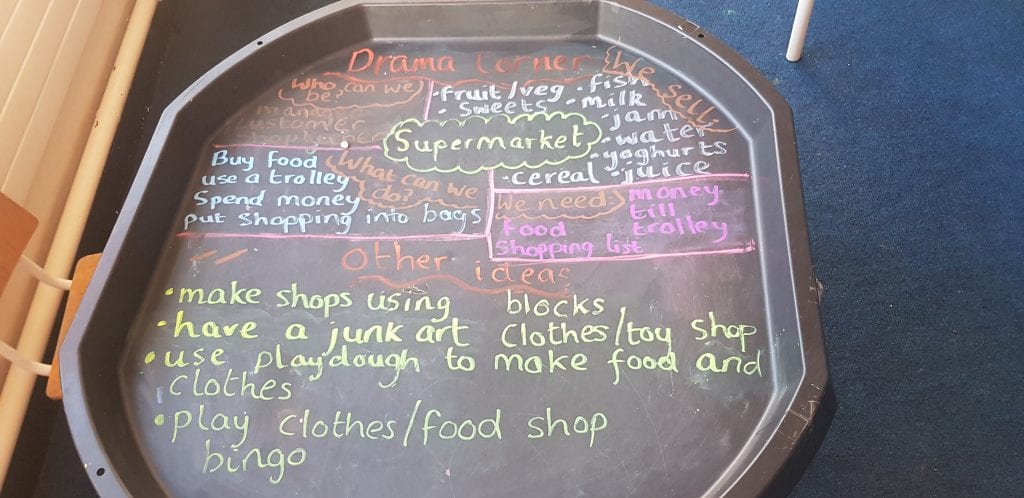 Drama Corner
Who can we
be?
and
customer
Supermarket
We
sell
• fruit/veg • fish
• sweets • milk
• jam
• water
• yoghurts
• cereal • juice
Buy food
use a trolley
Spend money
put shopping into bags
What can we
do?
We need:
money
till
food trolley
shopping list
Other ideas
• make shops using blocks
• have a junk art clothes/toy shop
• use playdough to make food and
clothes
• play clothes/food shop
bingo